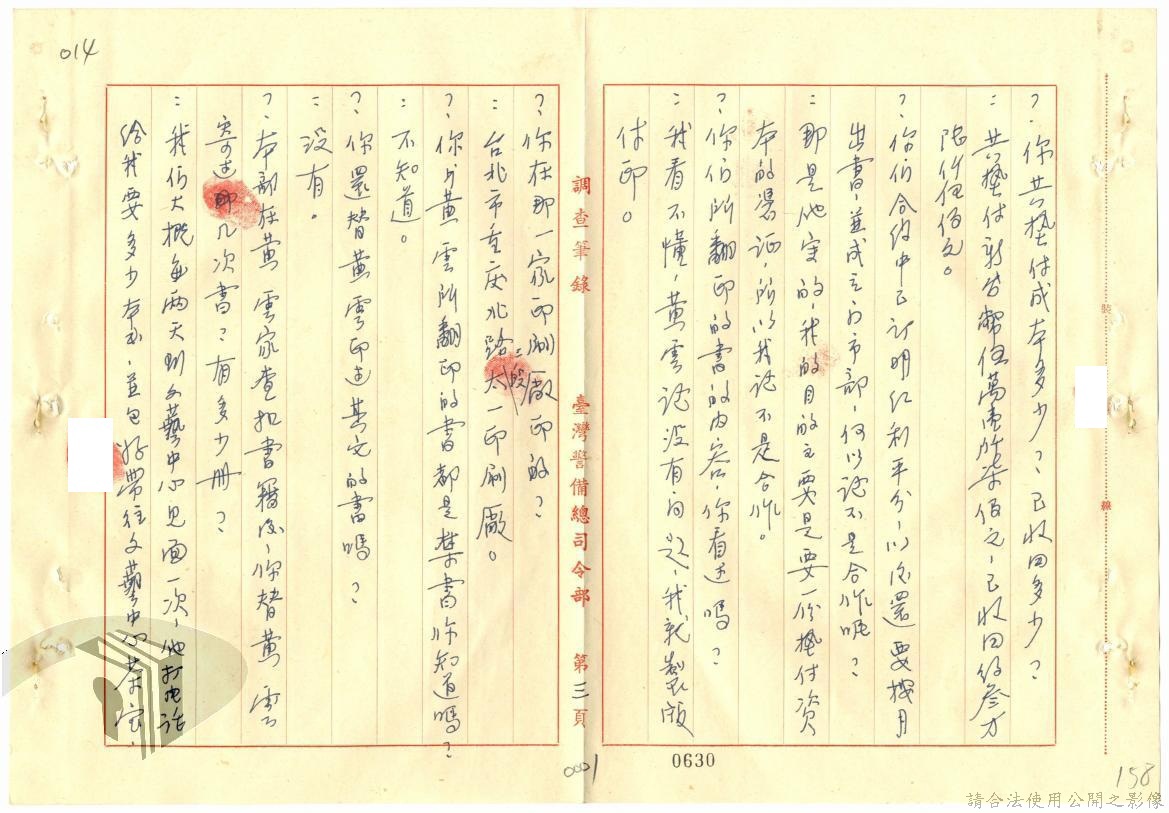 014
?:你共墊付成本多少?已收回多少?
:共墊付新台幣伍萬壹仟柒佰元,已收回約叁万
陸仟伍佰元。
?:你們合約中已訂明紅利平分,以后還要按月
出書,並成立門市部,何以說不是合作呢?
:那是他定的,我的目的主要是要一份墊付資
本的憑証,所以我說不是合作。
?:你們所翻印的書的內容,你看过嗎?
:我看不懂,黃雲說沒有問題,我就製版
付印。
調查筆錄 臺灣警備總司令部 第三頁
?:你在那一家印刷廠印的?
:台北市重庆北路二段太一印刷廠。
?:你与黃雲所翻印的書都是禁書你知道嗎?
:不知道。
?:你還替黃雲印过其它的書嗎?
:沒有。
?:本部在黃雲家查扣書籍后,你替黃雲
寄过几次書?有多少冊?
:我們大概每兩天到文藝中心見面一次,他打电話
給我要多少本書,並包好帶往文藝中心茶室,
裝 線
0001
0630
158
請合法使用公開之影像